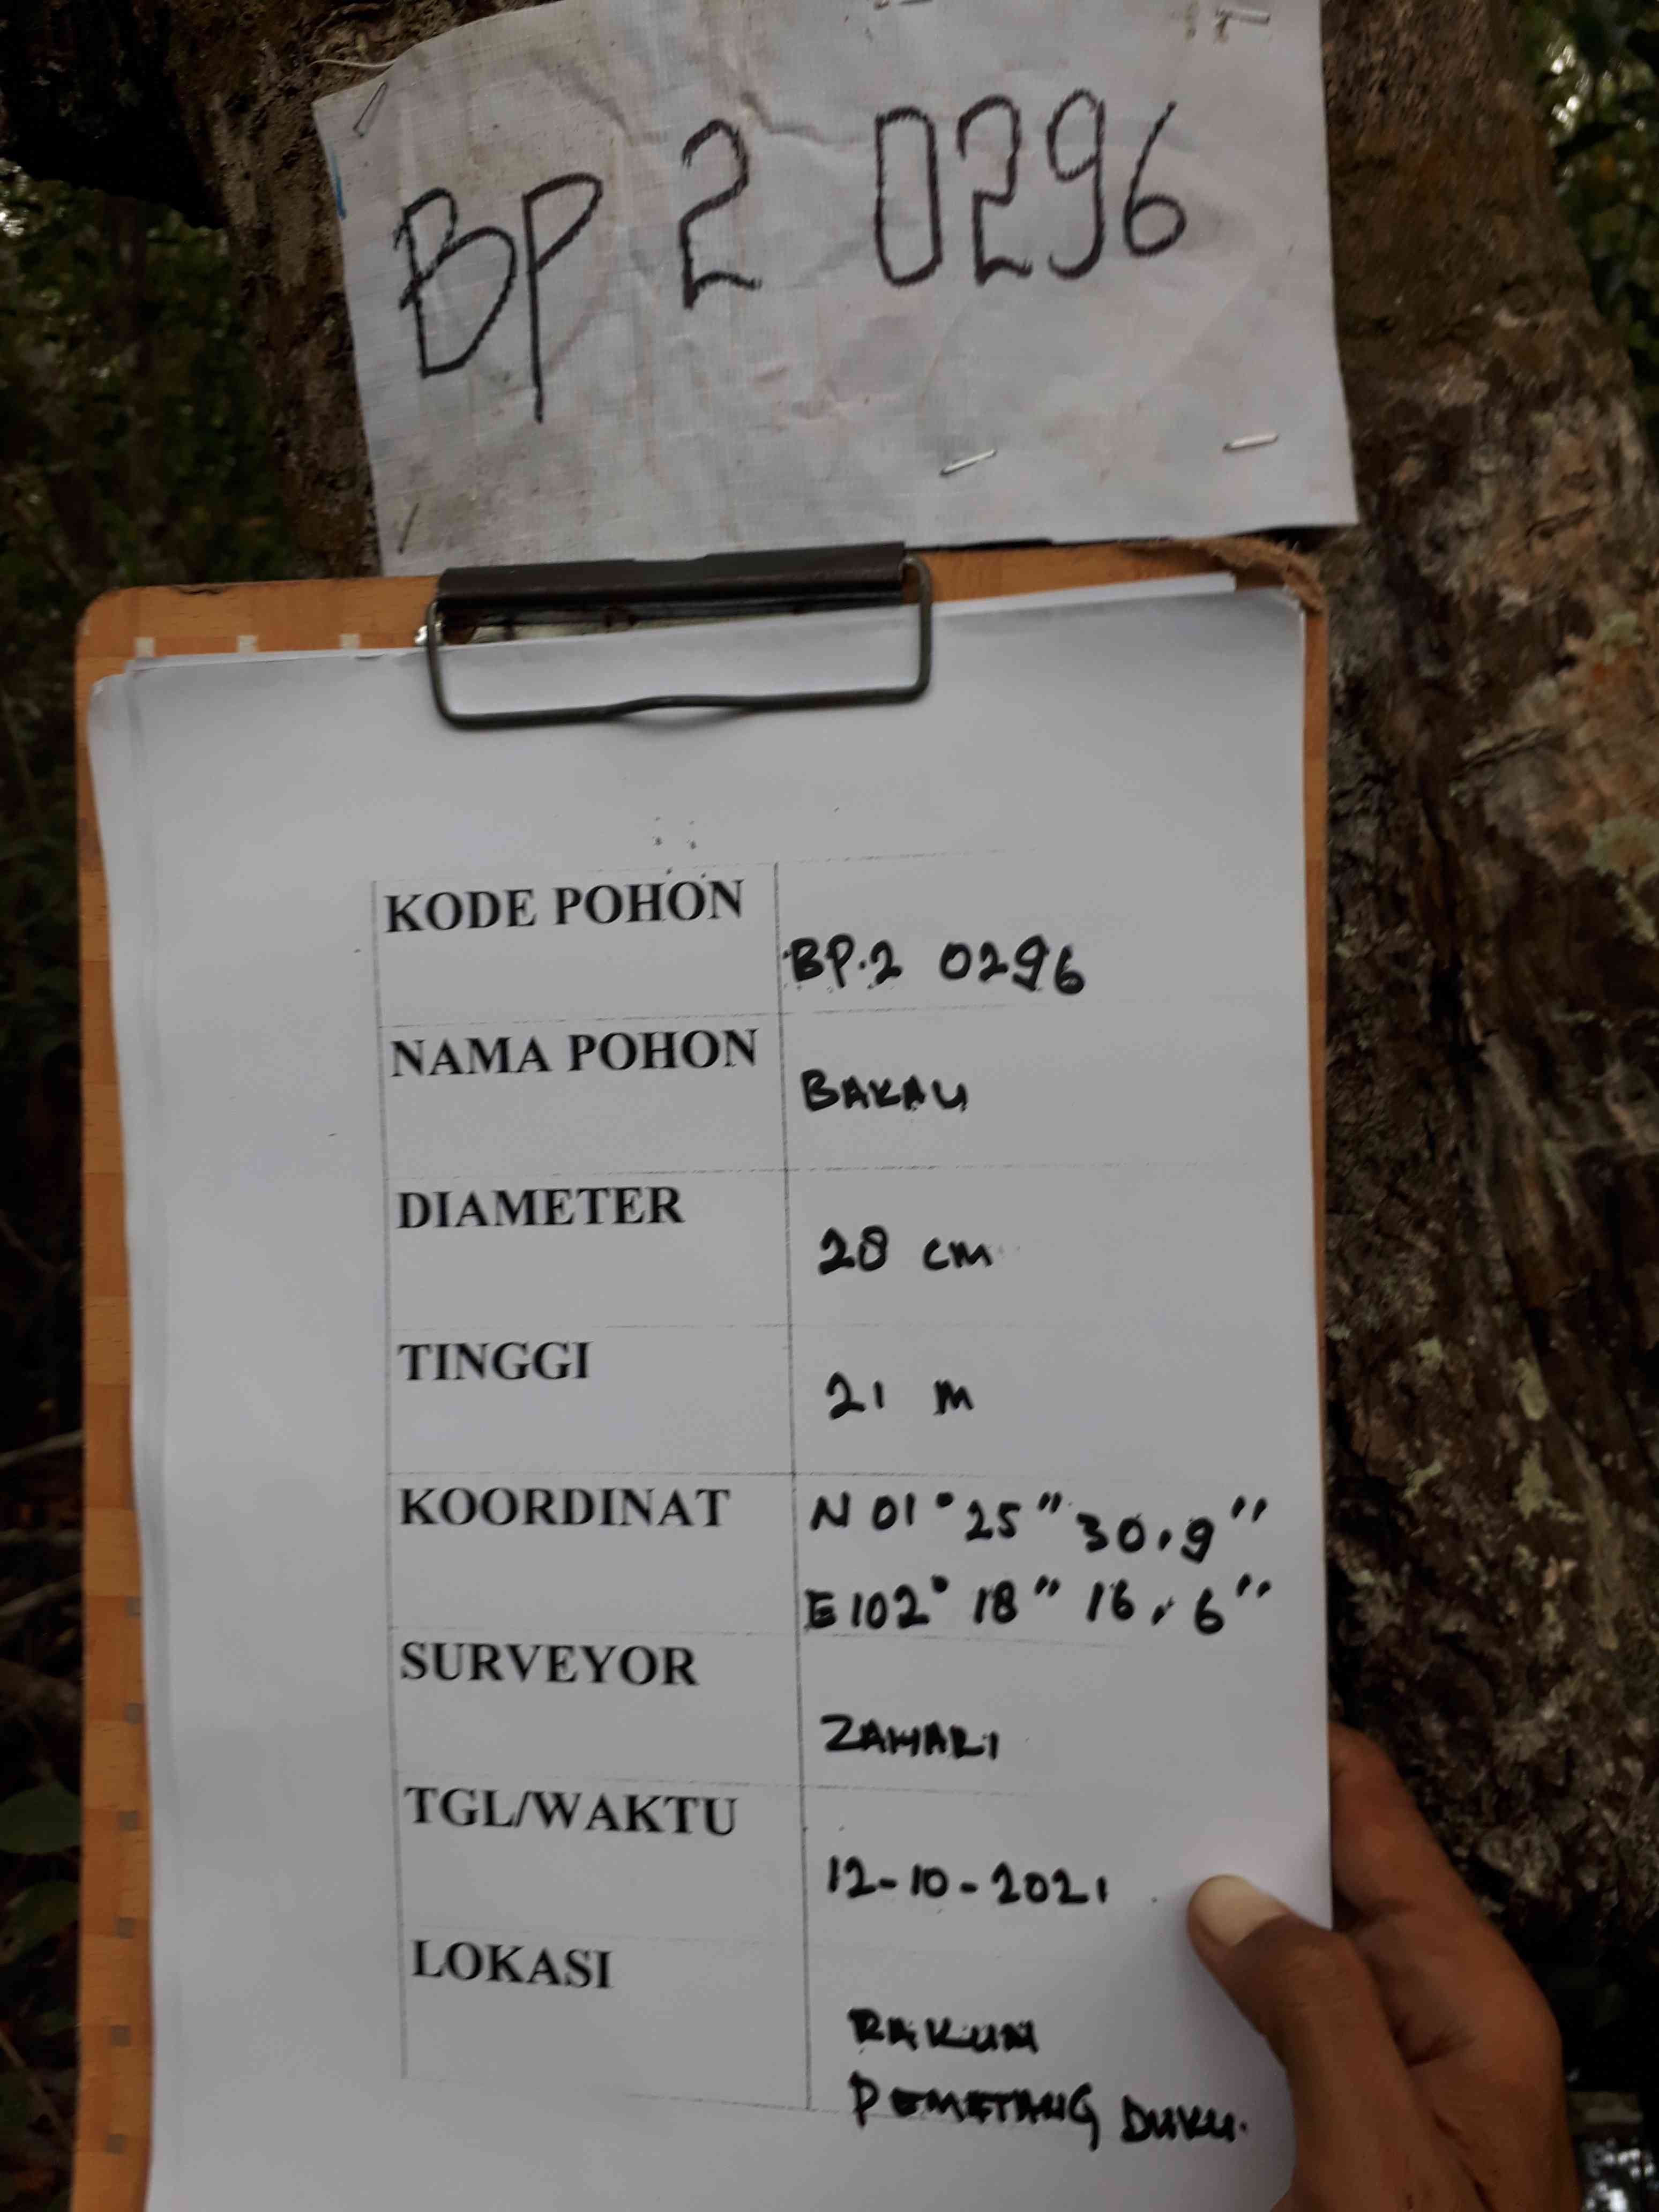 BP 2 0296
KODE POHON
BP.2 0296
NAMA POHON
BAKAU
DIAMETER
28 cm
TINGGI
21 m
KOORDINAT
N 01° 25" 30.9"
E 102° 18" 16.6"
SURVEYOR
ZAHARI
TGL/WAKTU
12-10-2021
LOKASI
PEMETANG DUKU.